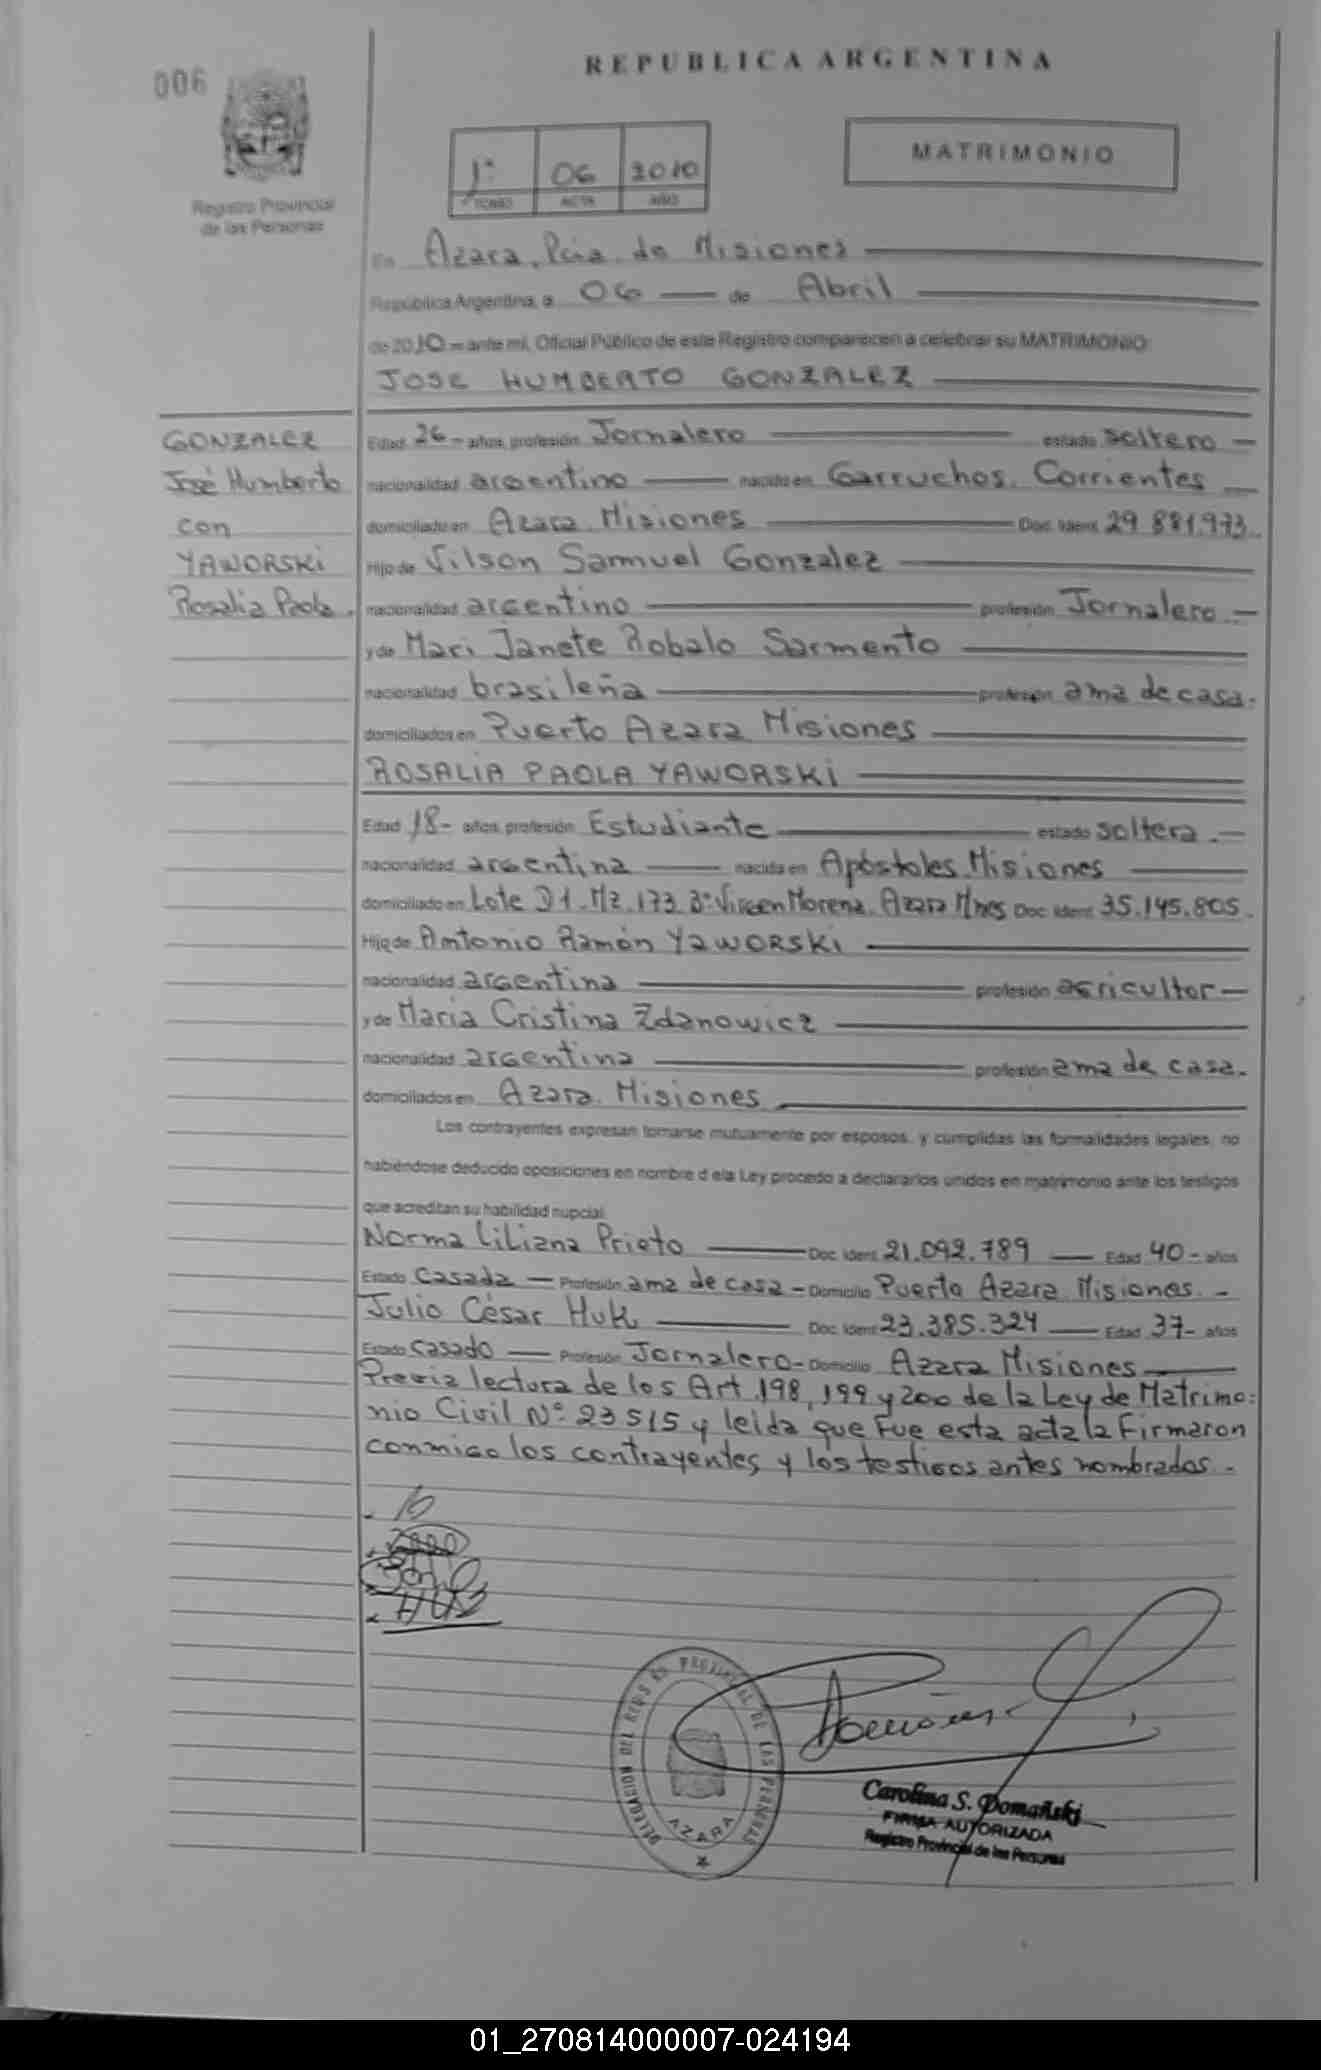 REPUBLICA ARGENTINA
006
MATRIMONIO
1º 06 2010
TOMO ACTA AÑO
Registro Provincial
de las Personas
En Azara, Pcia. de Misiones
República Argentina, a 06 de Abril
de 2010 ante mí, Oficial Público de este Registro comparecen a celebrar su MATRIMONIO:
JOSE HUMBERTO GONZALEZ
GONZALEZ
José Humberto
con
YAWORSKI
Rosalia Paola.
Edad 26 - años, profesión Jornalero estado soltero
nacionalidad argentino nacido en Garruchos. Corrientes
domiciliado en Azara Misiones Doc. Ident. 29.881.973.
Hijo de Vilson Samuel Gonzalez
nacionalidad argentino profesión Jornalero -
y de Mari Janete Robalo Sarmento
nacionalidad brasileña profesión ama de casa.
domiciliados en Puerto Azara Misiones
ROSALIA PAOLA YAWORSKI
Edad 18 - años, profesión Estudiante estado soltera.-
nacionalidad argentina nacida en Apóstoles Misiones
domiciliado en Lote 01. Mz. 173 Bº Virgen Morena. Azara Mnes Doc. Ident. 35.145.805.
Hijo de Antonio Ramón YAWORSKI
nacionalidad argentina profesión agricultor -
y de Maria Cristina Zdanowicz
nacionalidad argentina profesión ama de casa.
domiciliados en Azara. Misiones
Los contrayentes expresan tomarse mutuamente por esposos, y cumplidas las formalidades legales, no
habiéndose deducido oposiciones en nombre d ela Ley procedo a declararlos unidos en matrimonio ante los testigos
que acreditan su habilidad nupcial.
Norma Liliana Prieto Doc. Ident. 21.092.789 Edad 40 - años
Estado Casada - Profesión ama de casa - Domicilio Puerto Azara Misiones. -
Julio César Huk Doc. Ident. 23.385.324 Edad 37 - años
Estado Casado - Profesión Jornalero - Domicilio Azara Misiones
Previa lectura de los Art. 198, 199 y 200 de la Ley de Matrimo:
nio Civil Nº 23515 y leida que fue esta acta la firmaron
conmigo los contrayentes y los testigos antes nombrados. -
DELEGACION DEL REGISTRO PROVINCIAL DE LAS PERSONAS
AZARA
Carolina S. Domañski
FIRMA AUTORIZADA
Registro Provincial de las Personas
01_270814000007-024194